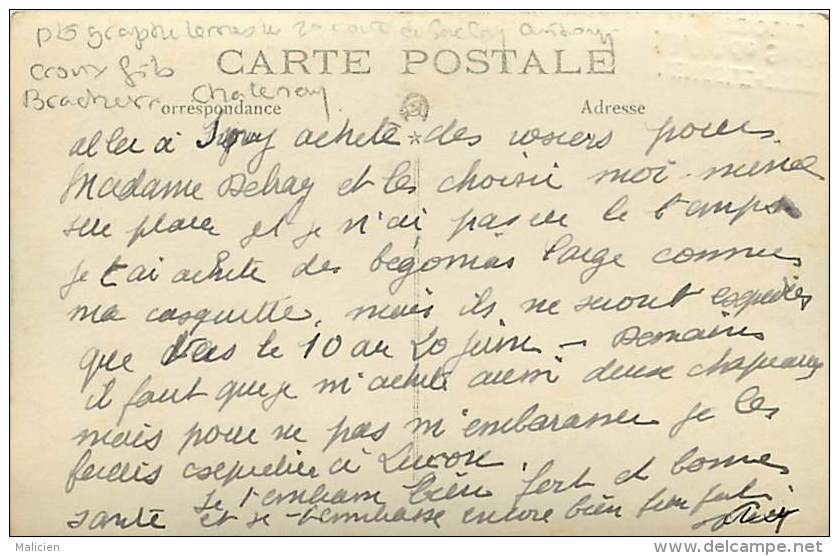 CARTE POSTALE
Croix fils
Chatenay
Correspondance
Adresse
aller à Igny acheté des rosiers pour
Madame Delhay et les choisir moi-même
sur place et je n'ai pas eu le temps
je t'ai acheté des bégonias large comme
ma casquette, mais ils ne seront expédiés
que vers le 10 au 20 juin - Demain
il faut que je m'achète aussi deux chapeaux
mais pour ne pas m'embarasser je les
ferais expédier à Luçon.
Je t'embrasse bien fort et bonne
santé et je t'embrasse encore bien bien fort
Malicien
delcampe.net